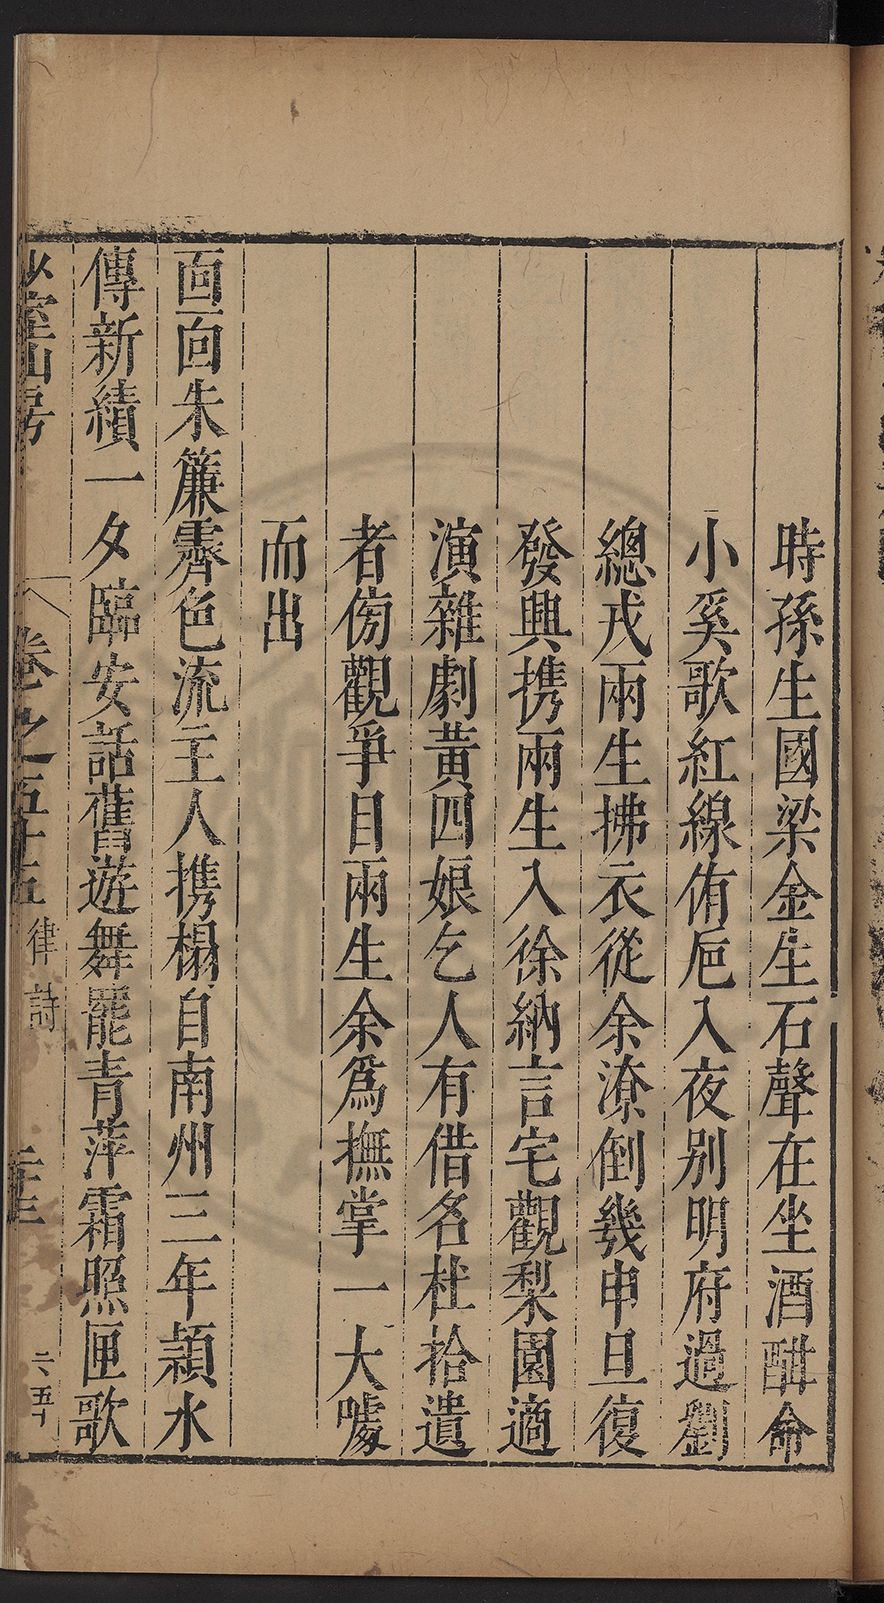 時孫生國梁金生石聲在坐酒酣命
小奚歌紅線侑巵入夜别明府過劉
總戎兩生拂衣從余潦倒幾申旦復
發興携兩生入徐納言宅觀梨園適
演雜劇黃四娘乞人有借名杜拾遺
者傍觀爭目兩生余爲撫掌一大噱
而出
面面朱簾霽色流主人携榻自南州三年潁水
傳新績一夕臨安話舊遊舞罷青萍霜照匣歌
少室山房
卷之五十五
律詩
六、五十